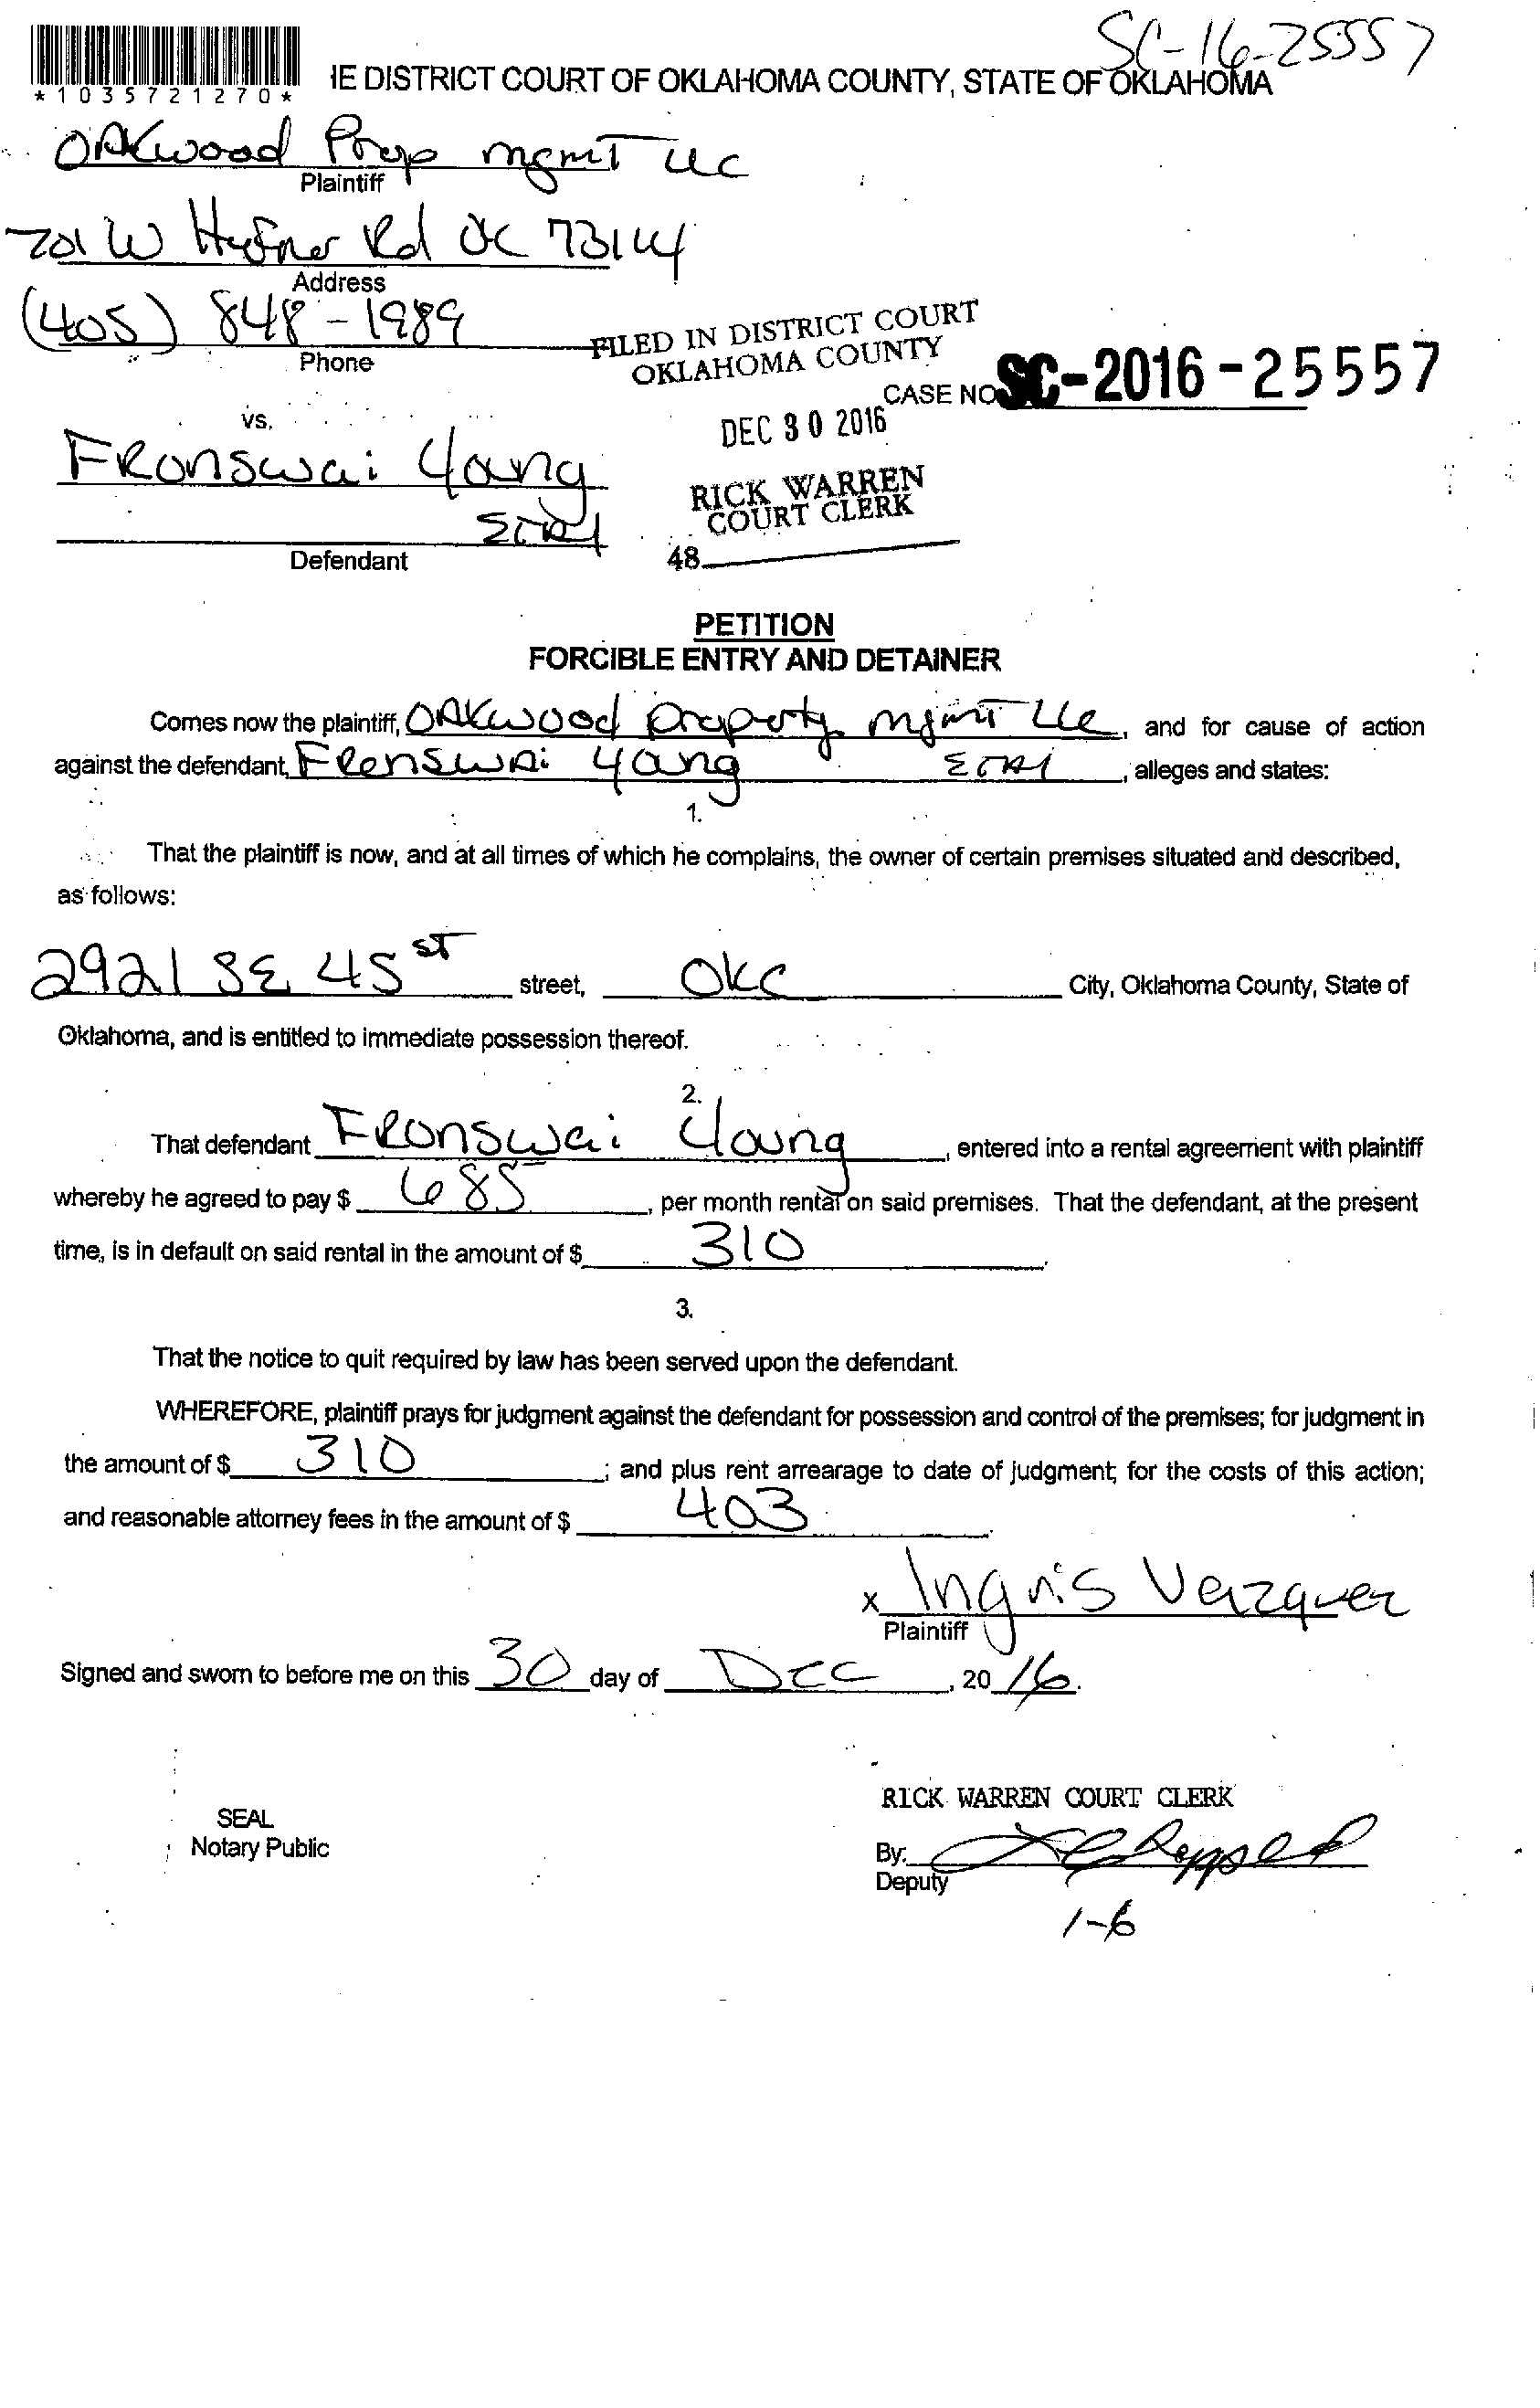 SC-16-25557
*1035721270*
IE DISTRICT COURT OF OKLAHOMA COUNTY, STATE OF OKLAHOMA
OAKwood Prop mgmt LLC
Plaintiff
701 W Hefner Rd OC 73114
Address
(405) 848-1989
Phone
FILED IN DISTRICT COURT
OKLAHOMA COUNTY
CASE NO. SC-2016-25557
DEC 30 2016
vs.
FRonswai Young
RICK WARREN
COURT CLERK
Defendant
48
PETITION
FORCIBLE ENTRY AND DETAINER
Comes now the plaintiff, OAKwood property mgmt LLC, and for cause of action
against the defendant, FRonswai Young, alleges and states:
1.
That the plaintiff is now, and at all times of which he complains, the owner of certain premises situated and described,
as follows:
2921 SE 45 ST street, OKC City, Oklahoma County, State of
Oklahoma, and is entitled to immediate possession thereof.
2.
That defendant FRonswai Young, entered into a rental agreement with plaintiff
whereby he agreed to pay $ 685, per month rental on said premises. That the defendant, at the present
time, is in default on said rental in the amount of $ 310.
3.
That the notice to quit required by law has been served upon the defendant.
WHEREFORE, plaintiff prays for judgment against the defendant for possession and control of the premises; for judgment in
the amount of $ 310; and plus rent arrearage to date of judgment; for the costs of this action;
and reasonable attorney fees in the amount of $ 403.
x Ingris Vazquez
Plaintiff
Signed and sworn to before me on this 30 day of Dec, 20 16.
RICK WARREN COURT CLERK
SEAL
Notary Public
By:
Deputy
1-6